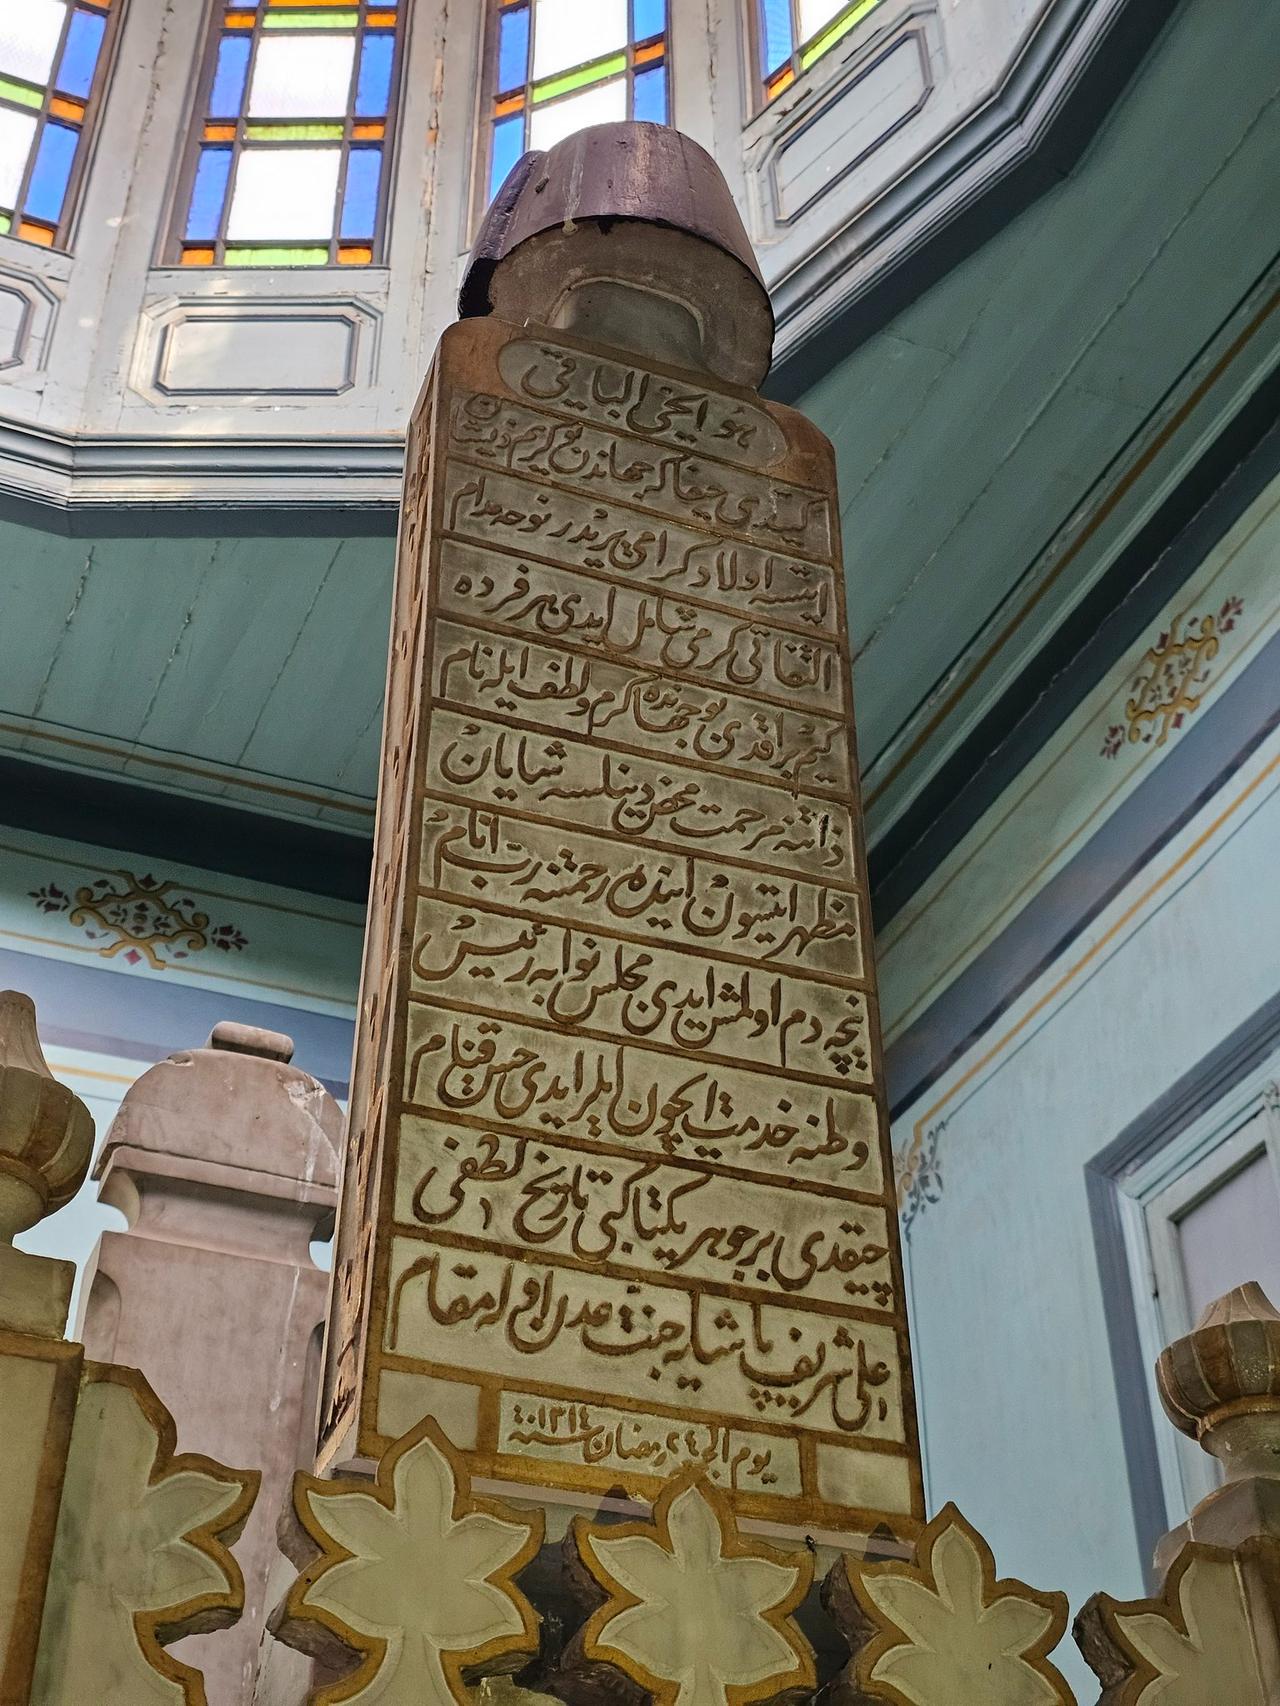 هو الحی الباقی
کیتدی حیفا کر جهاندن بو کریم ذیشان
ایتسه اولاد کرامی یریدر نوحه مدام
التفاتی کرمی شامل ایدی هر فرده
کیم براقدی بو جهانده کرم و لطف ایله نام
ذاتنه مرحمت محض دینلسه شایان
مظهر ایتسون انیده رحمتنه رب انام
نیچه دم اولمش ایدی مجلس نوابه رئیس
وطنه خدمت ایچون ایلر ایدی حسن قیام
چیقدی بر جوهر یکتا کبی تاریخ لطفی
اعلی شریف پاشایه جنت عدن اوله مقام
یوم ٢٤ رمضان سنه ١٣١٤